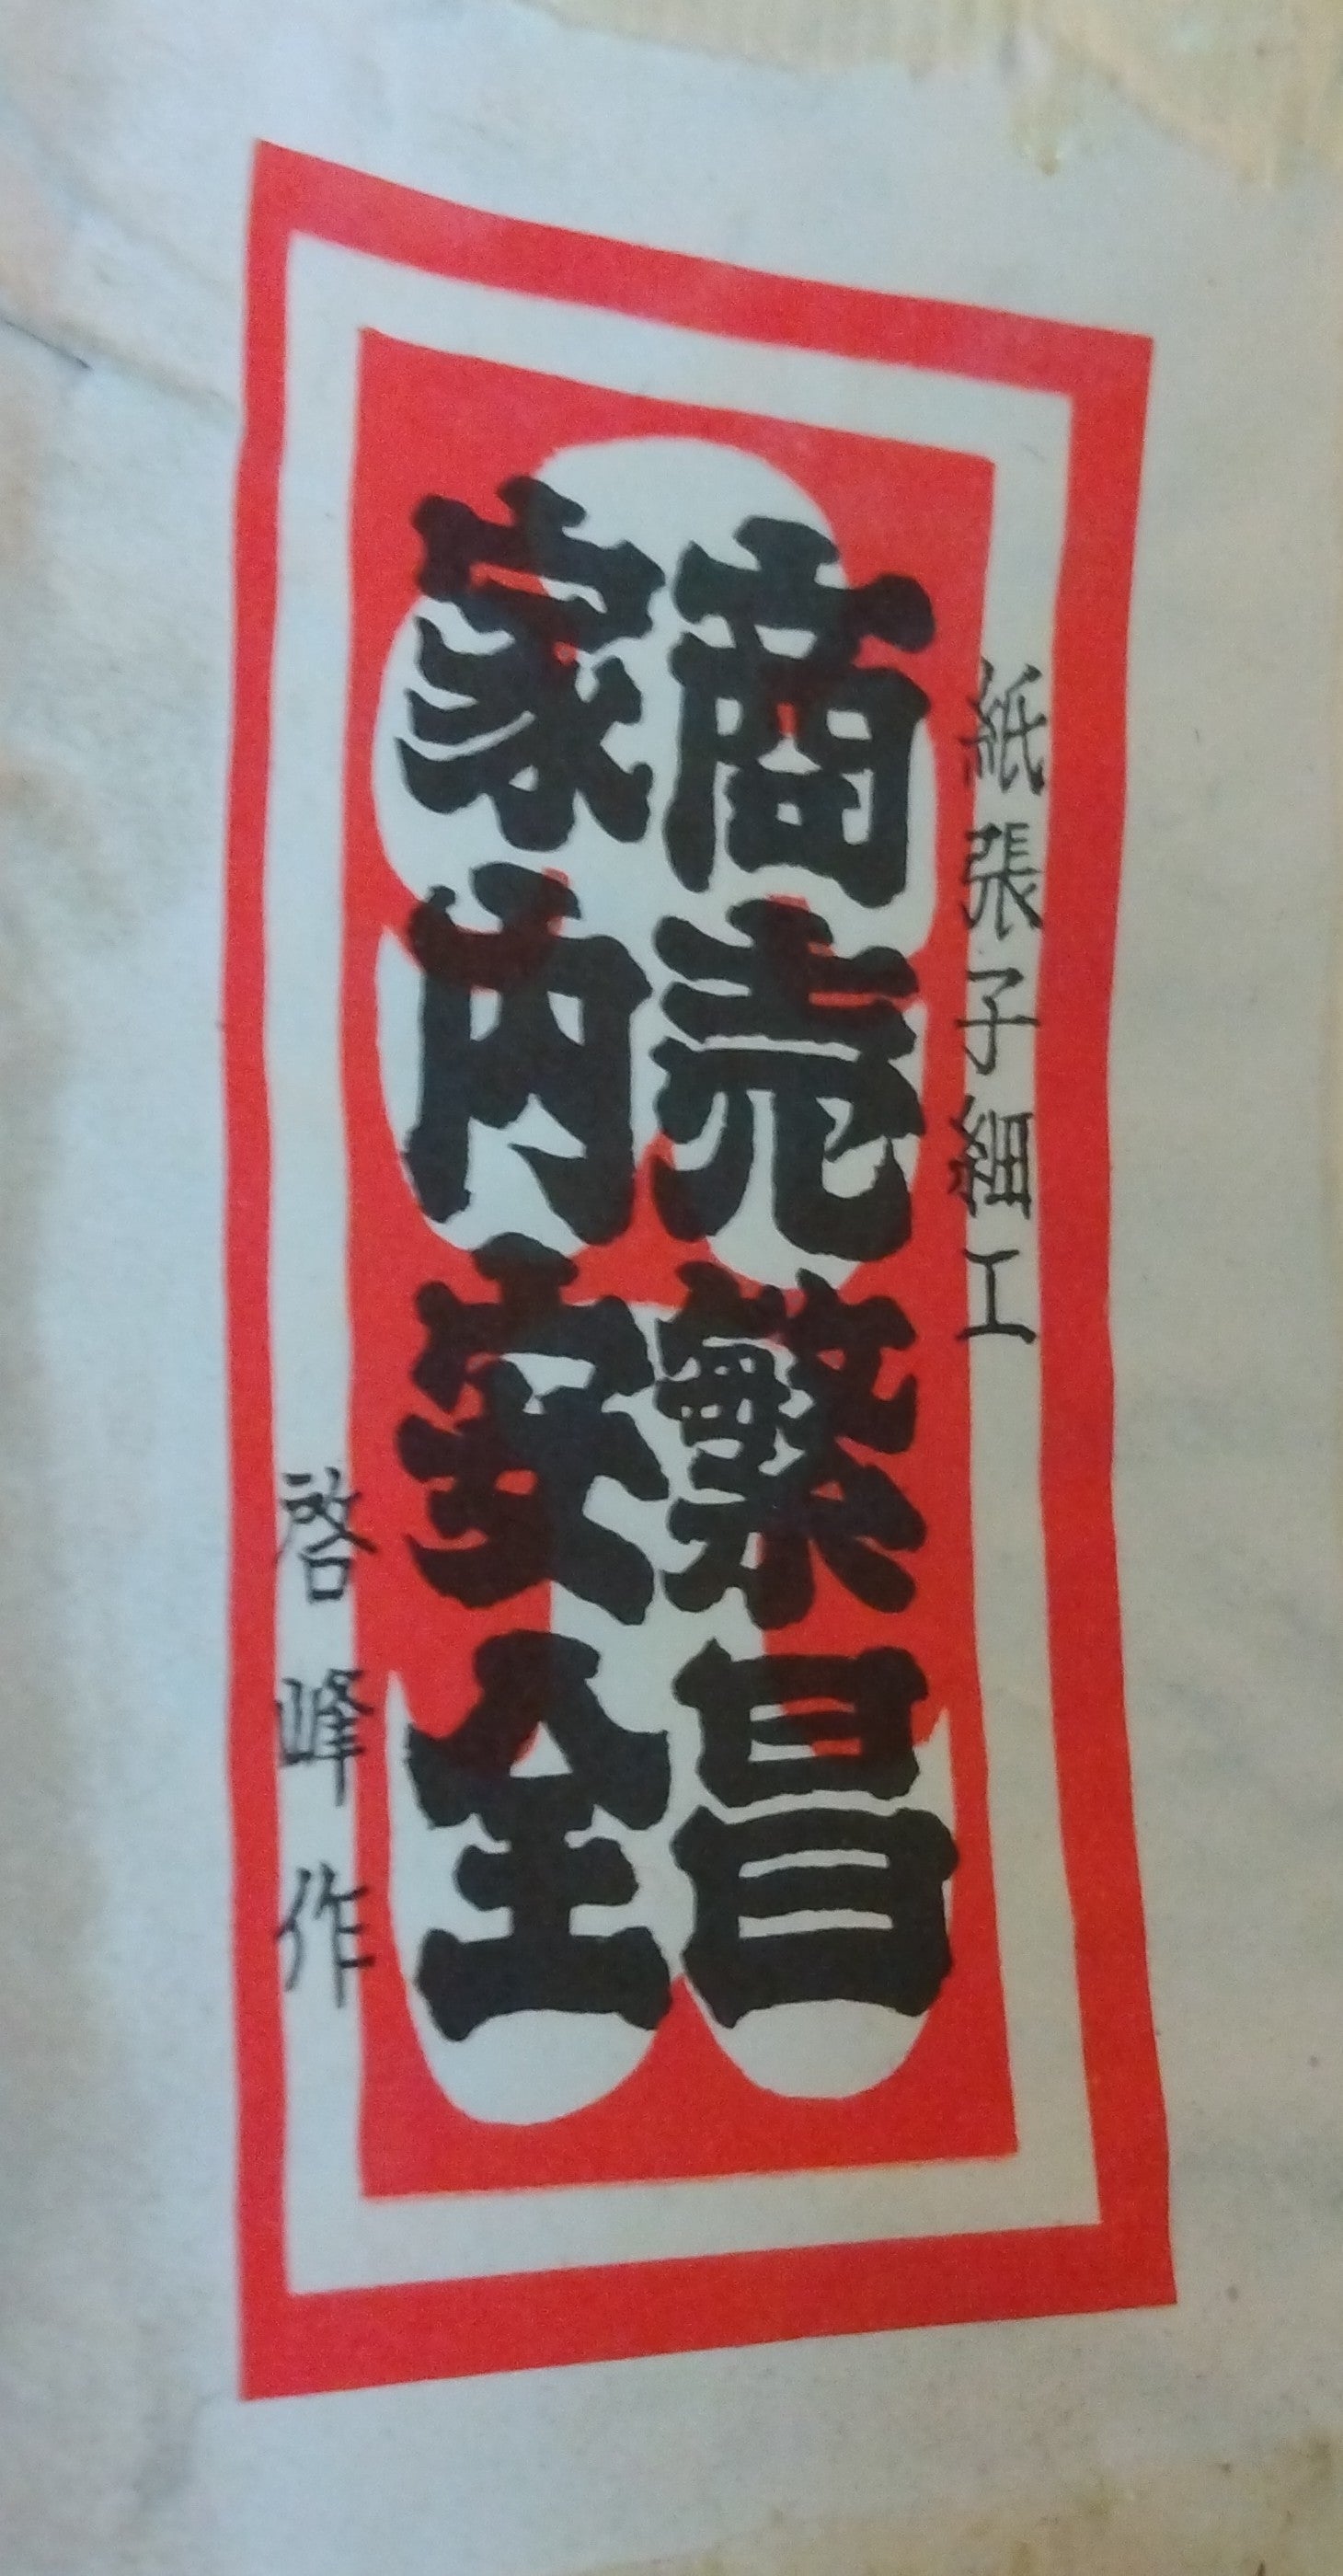 紙張子細工
商売繁昌
家内安全
啓峰作